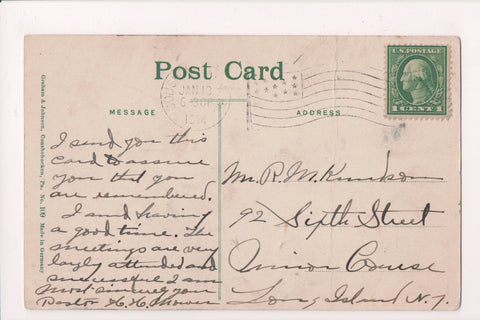 Post Card
MESSAGE
ADDRESS
JAN 13
6-30P
1914
U.S. POSTAGE
1 CENT 1
Graham & Johnson, Conshohocken, Pa. No. Made in Germany
I send you this
card to assure
you tht you
are remembered.
I and having
a good time. The
meetings are very
largly attended and
successful I am
most sincerely your
Pastor
Mr. R. M.
92 Sixth Street
Union Course
Long Island N.Y.